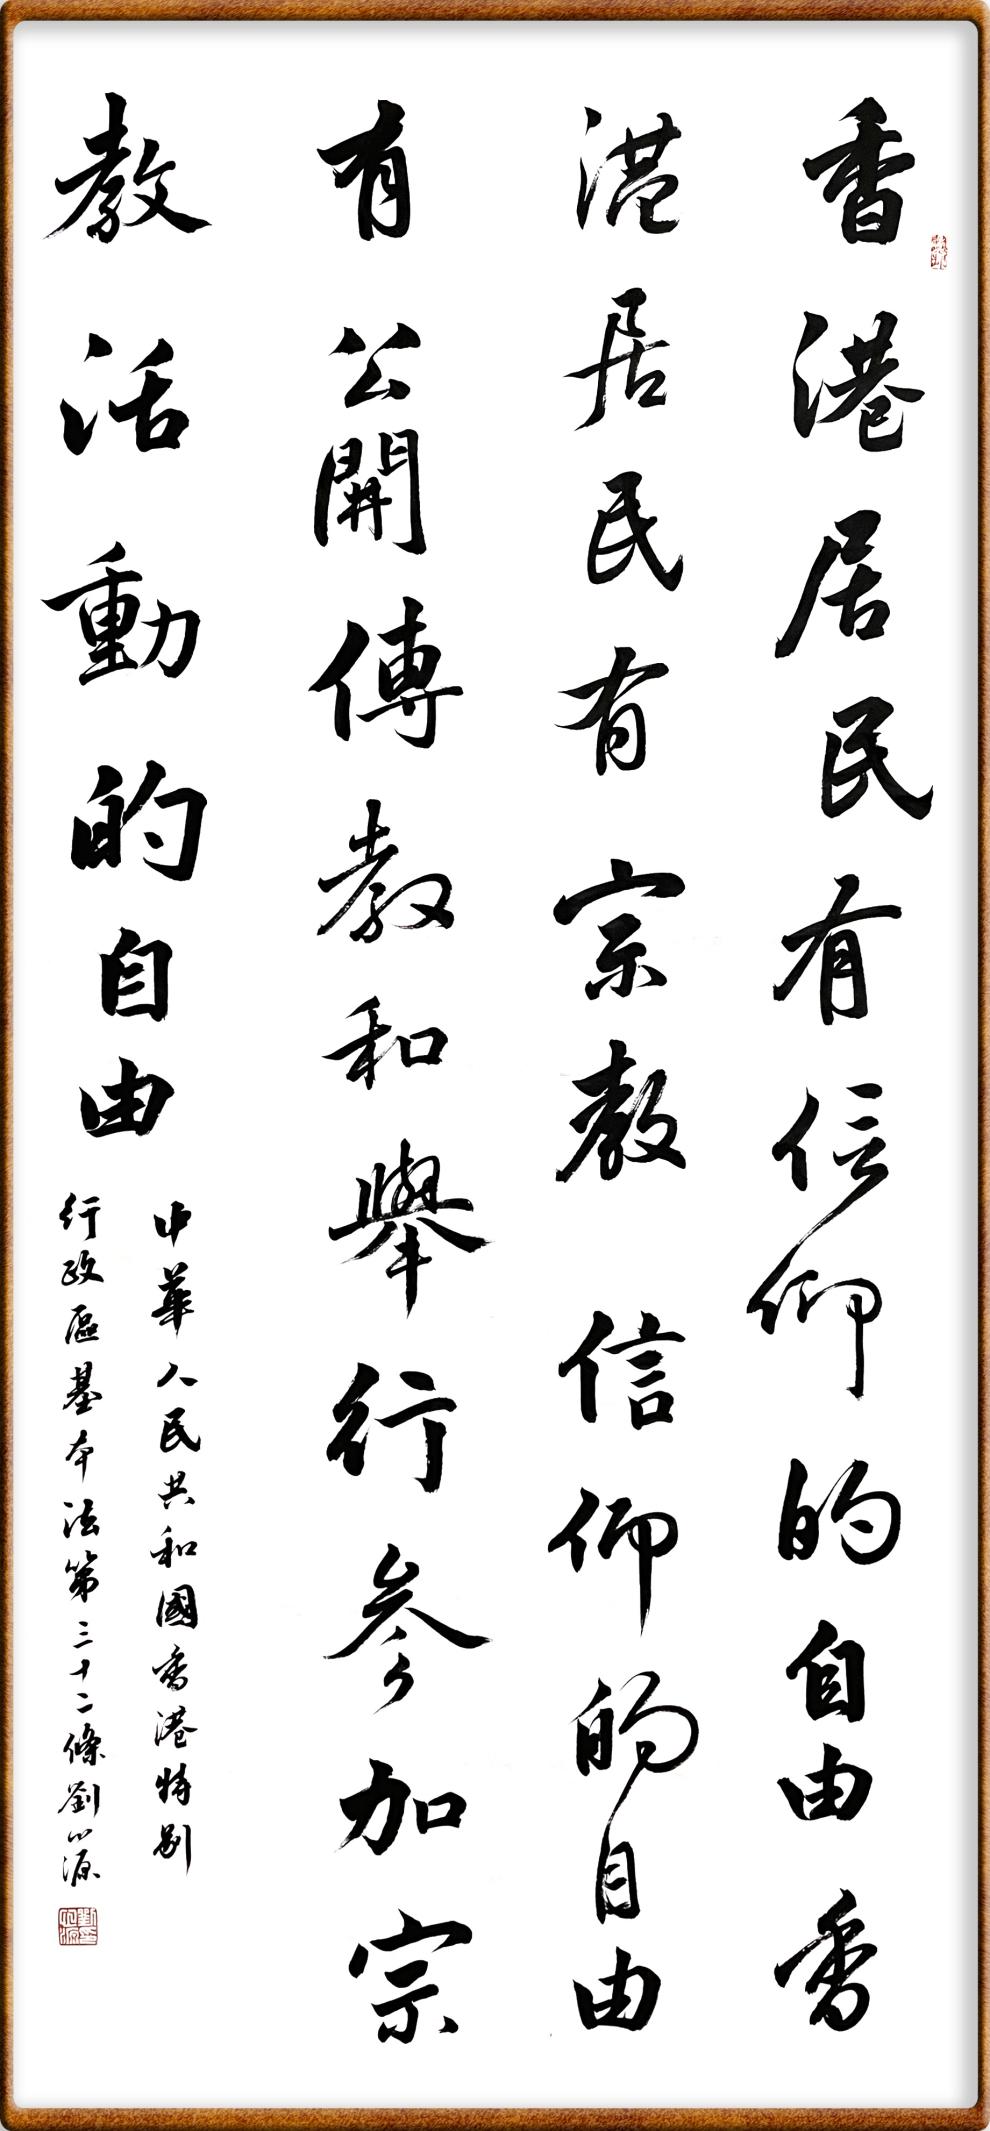 香港居民有信仰的自由香
港居民有宗教信仰的自由
有公開傳教和舉行參加宗
教活動的自由
中華人民共和國香港特別
行政區基本法第三十二條劉小源